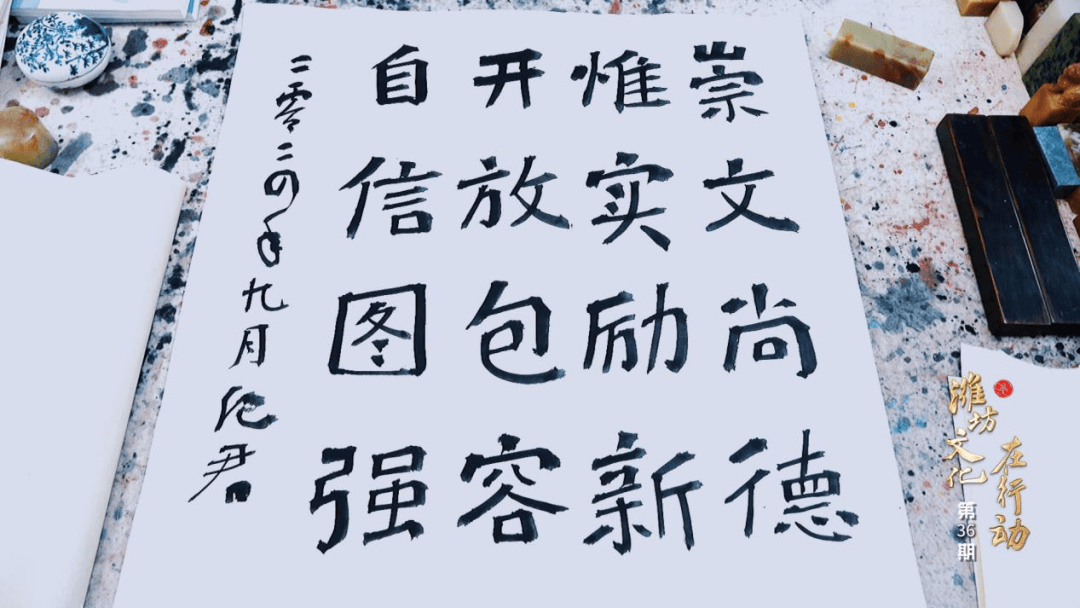 崇文尚德
惟实励新
开放包容
自信图强
二零二四年九月
君
潍坊文化
在行动
第36期